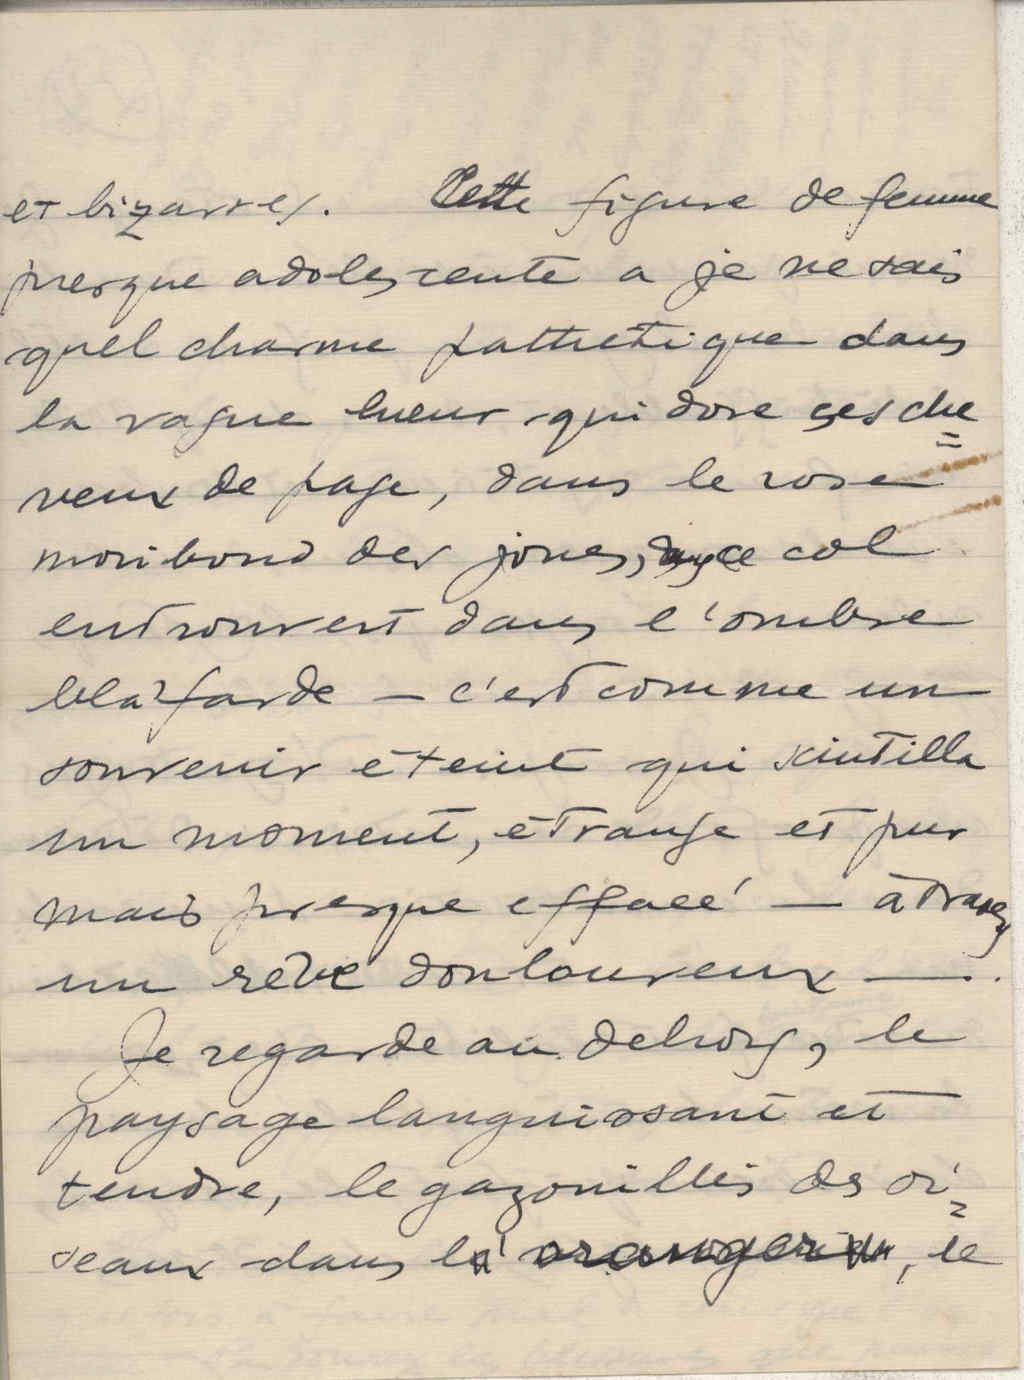 et bizarres. Cette figure de femme
presque adolescente a je ne sais
quel charme pathetique dans
la vague lueur qui dore ses che=
veux de page, dans le rose
moribond des joues, ce col
entrouvert dans l'ombre
blafarde — c'est comme un
souvenir éteint qui scintilla
un moment, étrange et pur
mais presque effacé — à travers
un rêve douloureux —.
Je regarde au dehors, le
paysage languissant et
tendre, le gazouillis des oi=
seaux dans l' oranger, le